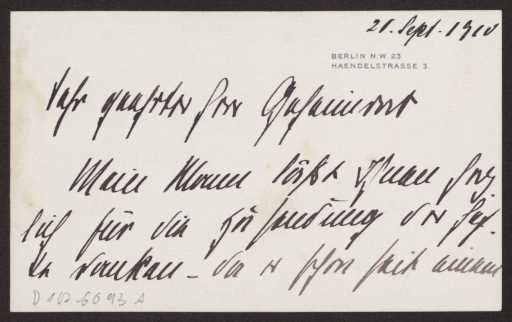 21. Sept. 1910
BERLIN N.W. 23
HAENDELSTRASSE 3.
Sehr geehrter Herr Geheimrat
Mein Mann läßt Ihnen herz
lich für die Zusendung der
te danken – da er schon seit einem
D 107-6093 A